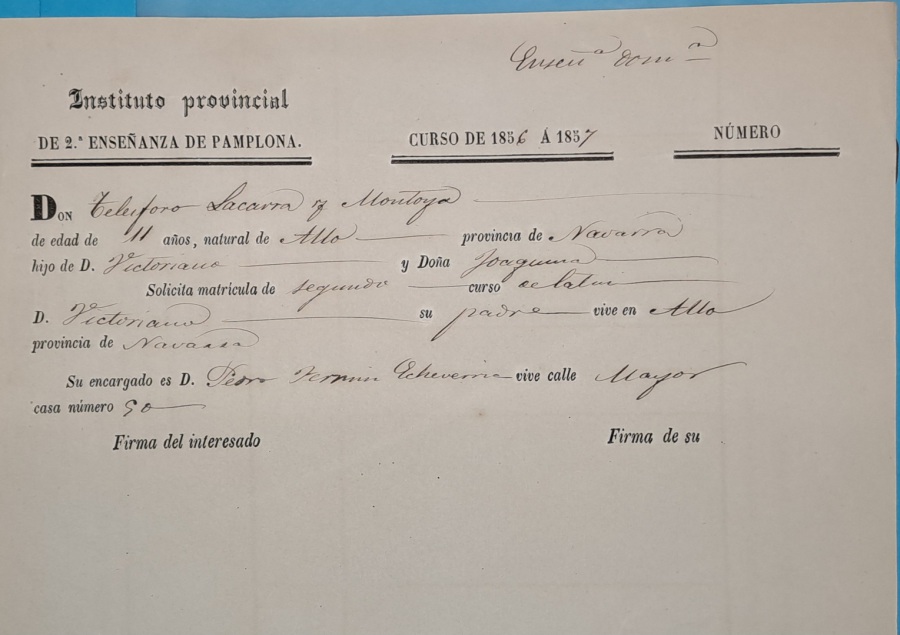 Enseñª domª
Instituto provincial
DE 2.ª ENSEÑANZA DE PAMPLONA.
CURSO DE 1856 Á 1857
NÚMERO
DON Telesforo Lacarra y Montoya
de edad de 11 años, natural de Allo provincia de Navarra
hijo de D. Victoriano y Doña Joaquina
Solicita matrícula de segundo curso de latin
D. Victoriano su padre vive en Allo
provincia de Navarra
Su encargado es D. Pedro Fermin Echeverria vive calle Mayor
casa número 90
Firma del interesado
Firma de su